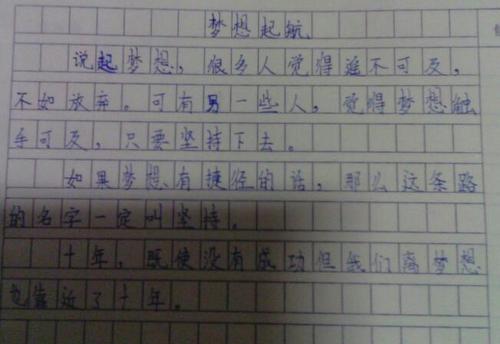 梦想起航
说起梦想，很多人觉得遥不可及，
不如放弃。可有另一些人，觉得梦想触
手可及，只要坚持下去。
如果梦想有捷径的话，那么这条路
的名字一定叫坚持。
十年，既使没有成功但我们离梦想
也靠近了十年。